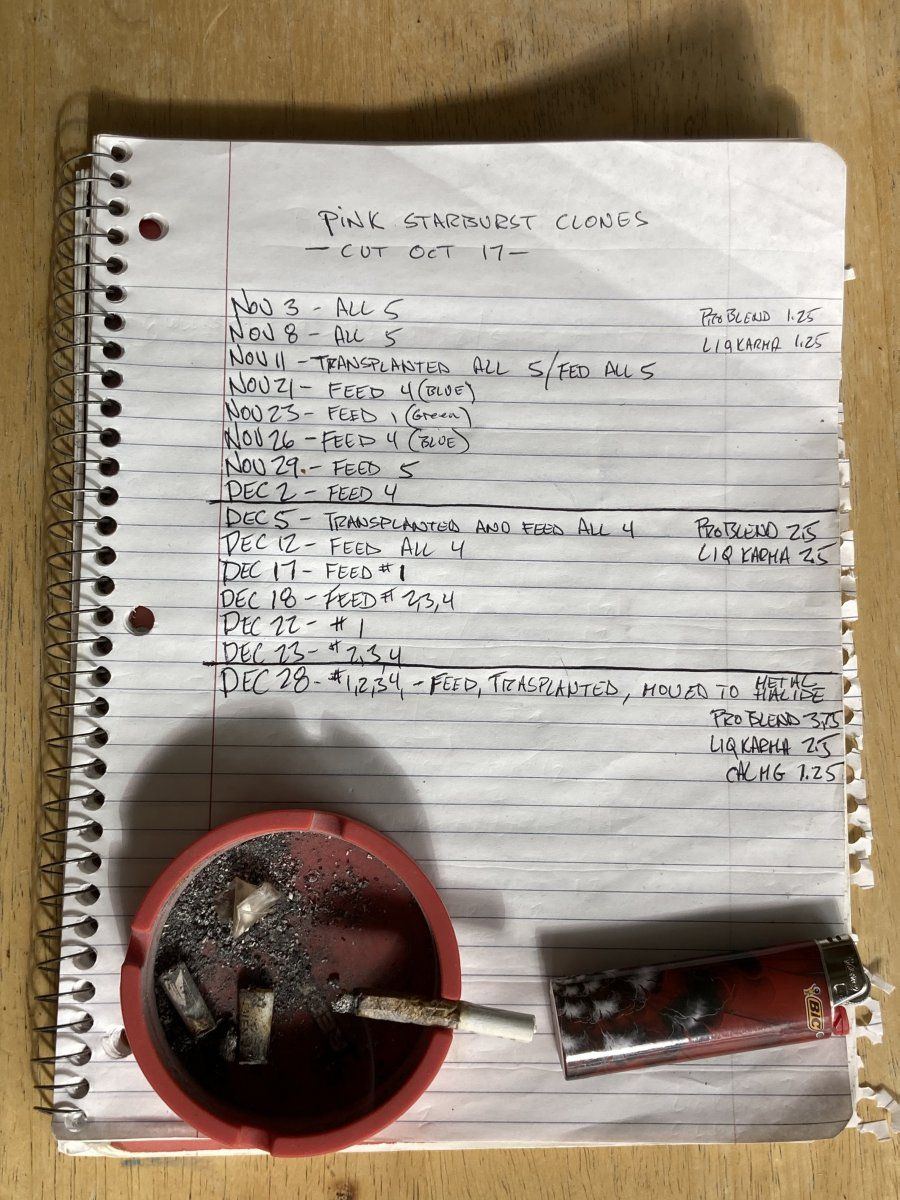 PINK STARBURST CLONES
— CUT OCT 17 —
NOV 3 - ALL 5
PRO BLEND 1.25
NOV 8 - ALL 5
LIQ KARMA 1.25
NOV 11 - TRANSPLANTED ALL 5/FED ALL 5
NOV 21 - FEED 4 (BLUE)
NOV 23 - FEED 1 (Green)
NOV 26 - FEED 4 (BLUE)
NOV 29. - FEED 5
DEC 2 - FEED 4
DEC 5 - TRANSPLANTED AND FEED ALL 4 PRO BLEND 2.5
DEC 12 - FEED ALL 4 LIQ KARMA 2.5
DEC 17 - FEED #1
DEC 18 - FEED # 2,3,4
DEC 22 - # 1
DEC 23 - # 2,3,4
DEC 28 - #1,2,3,4, - FEED, TRASPLANTED, MOVED TO METAL
HALIDE
PRO BLEND 3.75
LIQ KARMA 2.5
CALMG 1.25
BIC